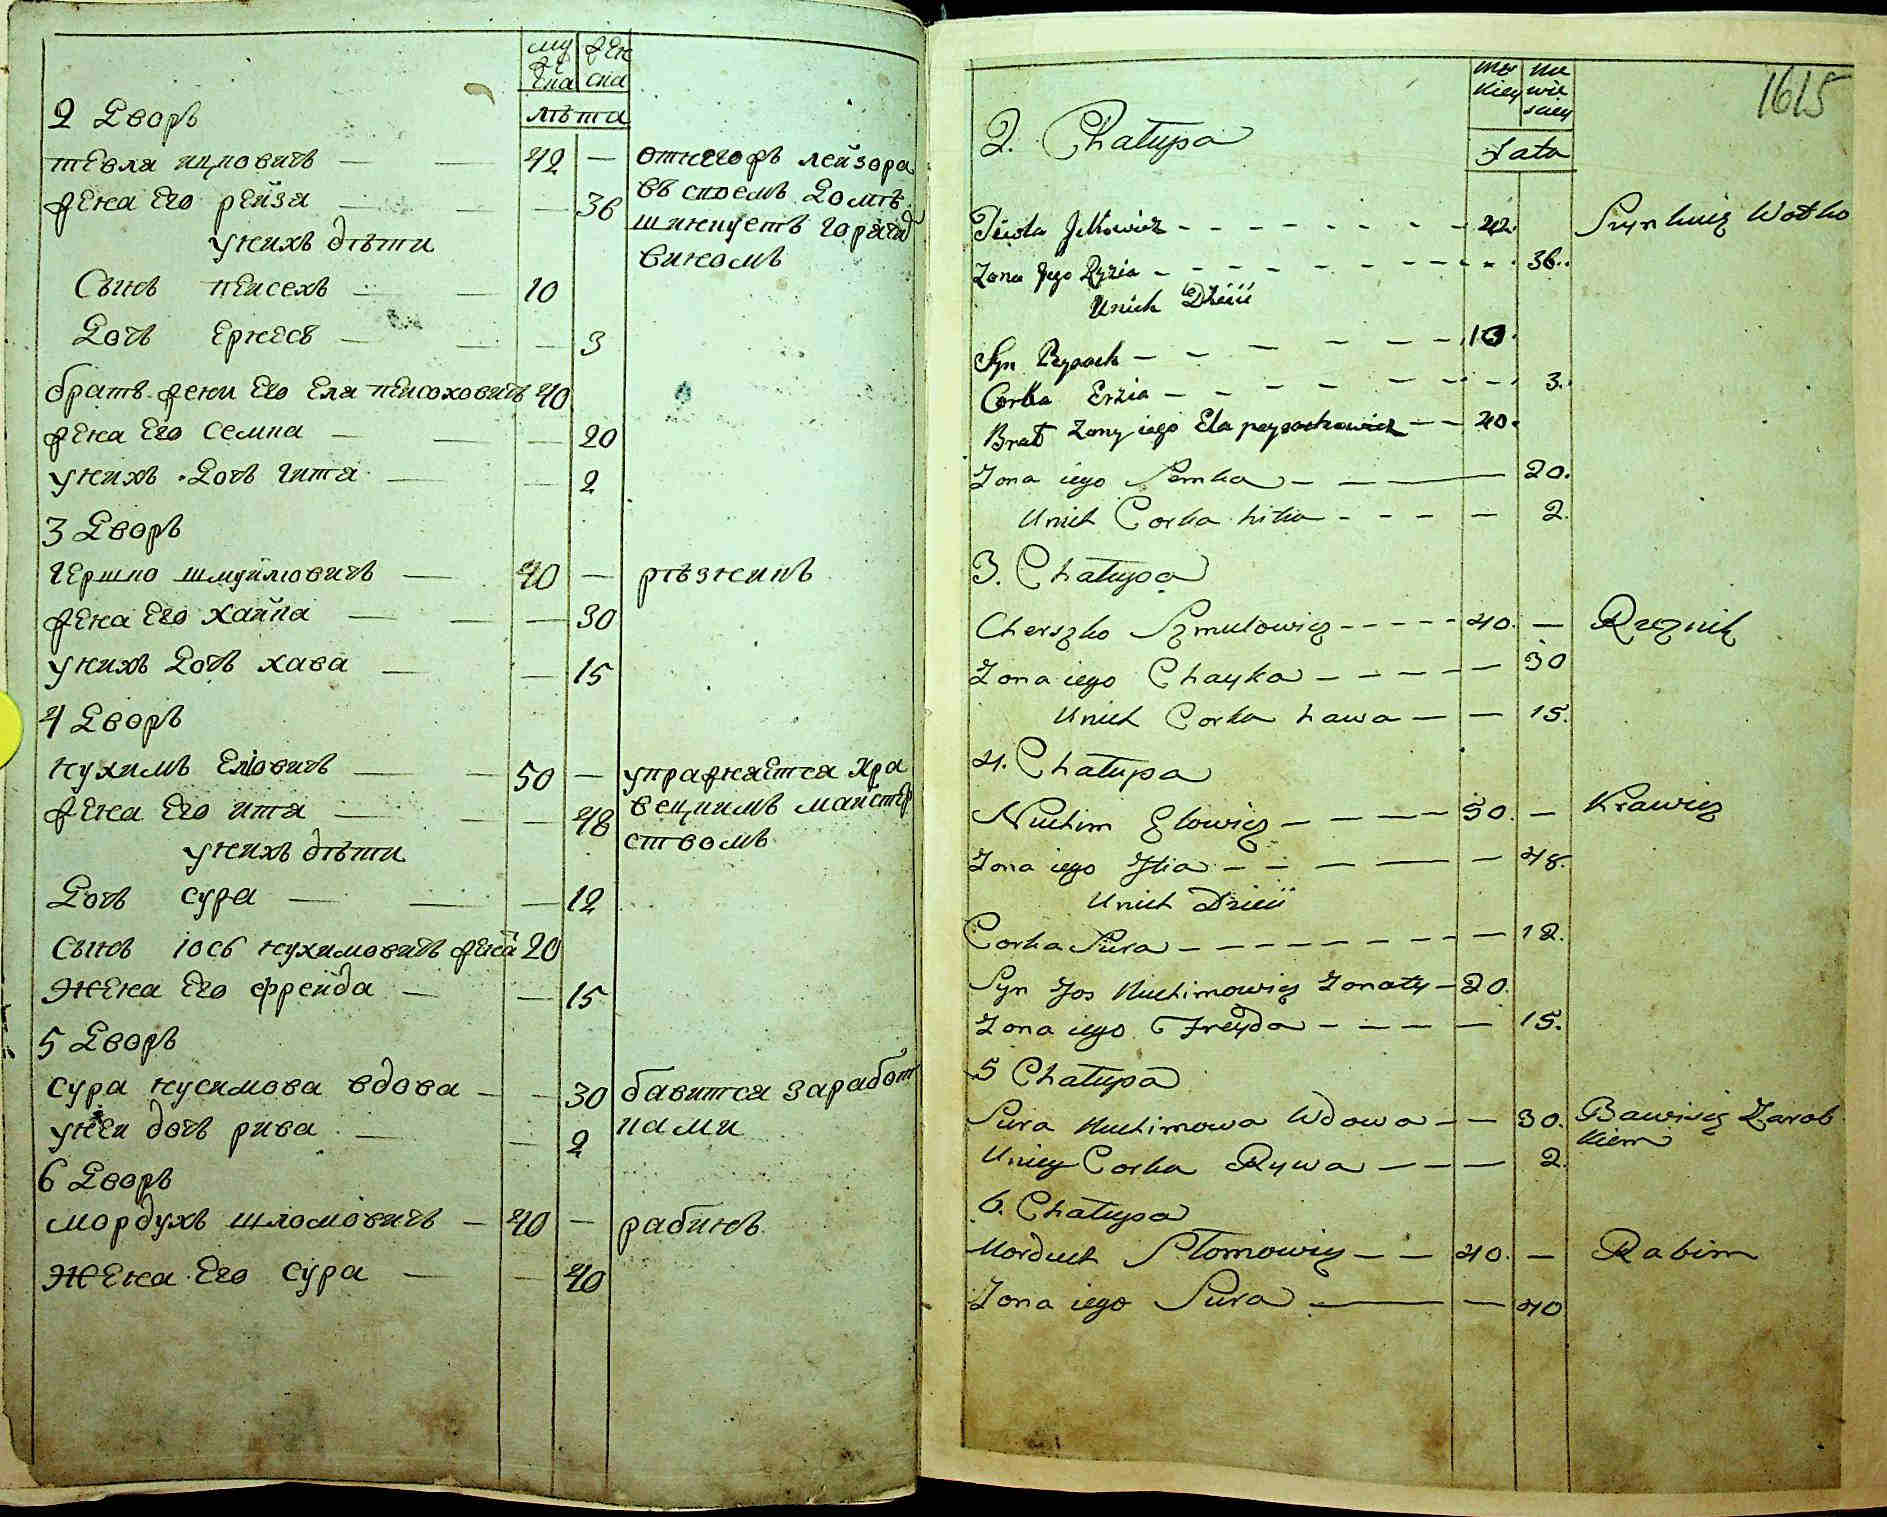 му же
же ска
ска
лѣта
2 Дворъ
тевля ицковичъ — — 42 — отнегожъ лейзора
жена Его рейзя — — — 36 въ своемъ домѣ
шинкуетъ горячъ
унихъ дѣти
виномъ
Сынъ пейсехъ — — 10
Дочь Ержесв — — — 3
братъ жени Его Еля пейсоховичъ 40
жена Его семка — — — 20
унихъ Дочь гитя — — 2
3 Дворъ
гершко шмуйловичъ — 40 — рѣзникъ
жена Его хайка — — — 30
унихъ Дочь хава — — 15
4 Дворъ
нухимъ Еліовичъ — — 50 — упражняется кра
жена Его итя — — — 48 вецкимъ майстер
унихъ дѣти ствомъ
Дочь сура — — — 12
сынъ іось нухимовичъ жена 20
Жена Его фрейда — — 15
5 Дворъ
сура нусимова вдова — — 30 бавится заработ
уней дочь рива — — 2 ками
6 Дворъ
мордухъ шломовичъ — 40 — рабинъ
Жена Его сура — — 40
1615
mę na
kiey wie
skiey
Lata
2. Chałupa
Tewla Jckowicz - - - - - - - - 42. Szynkuię Wodko
Zona Jego Ryzia - - - - - - - - - - 36.
Unich Dzieii
Syn Peysach - - - - - - 10.
Corka Erzia - - - - - - - - 3.
Brat Zony iego Ela peysachowicz - - 40.
Zona iego Semka - — — 20.
Unich Corka hitia - - - - — 2.
3. Chałupa
Cherszko Szmulowicz - - - - - 40. — Rzeznik
Zona iego Chayka - - - - — 30
Unich Corka hawa — — 15.
4. Chałupa
Nuchim Elowicz - - - - 50. — Krawicz
Zona iego Jtia - - — — — 48.
Unich Dzieii
Corka Sura - - - - - - - - — 12.
Syn Jos Nuchimowicz Zonaty - 20.
Zona iego Freyda - - - - — 15.
5 Chałupa
Sura Nuchimowa Wdowa - — 30. Bawisię Zarob
kiem
Uniey Corka Rywa — — — 2.
6. Chałupa
Morduch Szlomowicz — — 40. — Rabim
Zona iego Sura — — 40